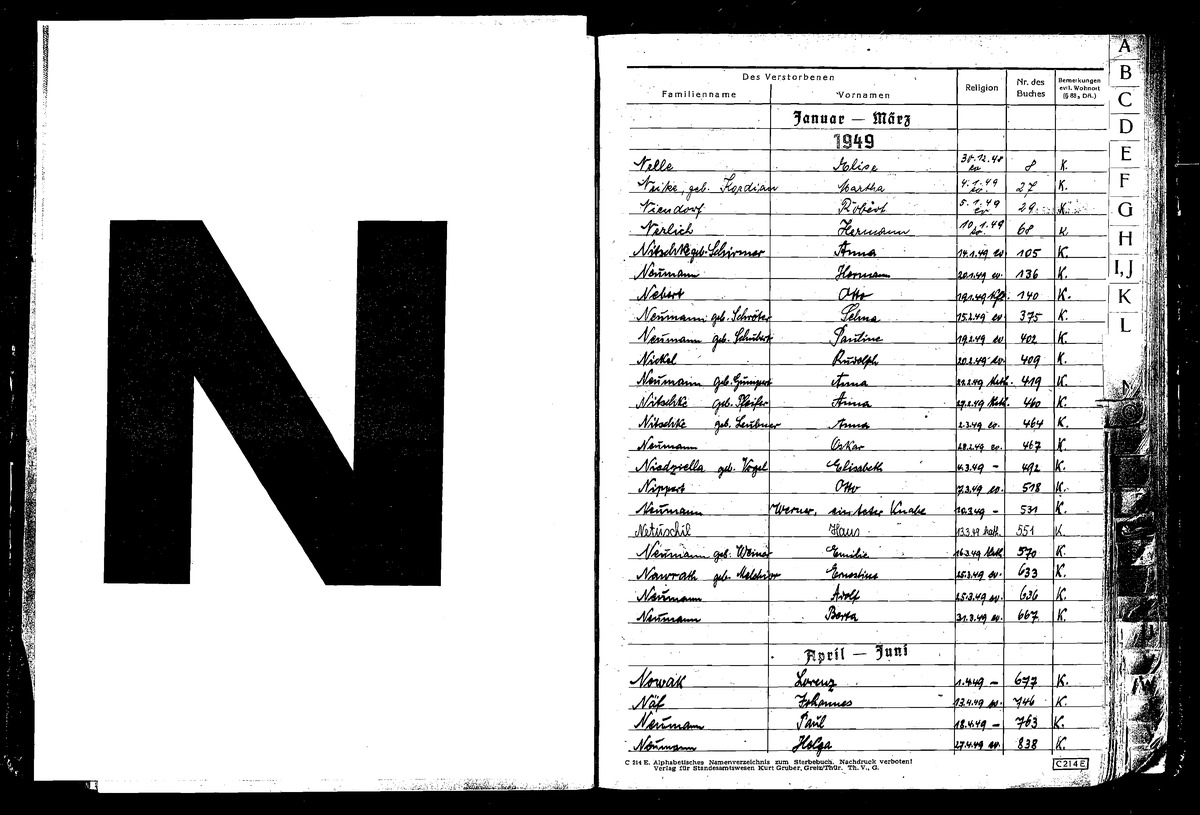 N
Des Verstorbenen
Familienname Vornamen Religion Nr. des Buches Bemerkungen evtl. Wohnort (§ 88, DA.)
Januar — März
1949
Nelle Elise 30.12.48 ev 8 K.
Neike, geb. Kordian Martha 4.1.49 ev. 27 K.
Niendorf Robert 5.1.49 ev 29. K.
Nerlich Hermann 10.1.49 ev. 68 K.
Nitschke geb. Schirmer Anna 14.1.49 ev. 105 K.
Neumann Hermann 20.1.49 ev. 136 K.
Nebert Otto 19.1.49 140 K.
Neumann geb. Schröter Selma 15.2.49 ev. 375 K.
Neumann geb. Schubert Pauline 19.2.49 ev. 402 K.
Nickel Rudolph 20.2.49 ev. 409 K.
Neumann geb. Gumpert Anna 21.2.49 kath. 419 K.
Nitschke geb. Pfeifer Anna 27.2.49 kath. 460 K.
Nitschke geb. Leubner Anna 2.3.49 ev. 464 K.
Neumann Oskar 28.2.49 ev. 467 K.
Niedziella geb. Vogel Elisabeth 4.3.49 – 492 K.
Nippert Otto 7.3.49 ev. 518 K.
Neumann Werner, ein toter Knabe 10.3.49 – 531 K.
Netuschil Hans 13.3.49 kath. 551 K.
Neumann geb. Weiner Emilie 16.3.49 kath 570 K.
Nawrath geb. Melchior Ernestine 25.3.49 ev. 633 K.
Neumann Adolf 25.3.49 ev. 636 K.
Neumann Berta 31.3.49 ev. 667 K.
April — Juni
Nowak Lorenz 1.4.49 – 677 K.
Näf Johannes 13.4.49 ev. 746 K.
Neumann Paul 18.4.49 – 763 K.
Neumann Helga 27.4.49 ev. 838 K.
C 214 E. Alphabetisches Namenverzeichnis zum Sterbebuch. Nachdruck verboten!
Verlag für Standesamtswesen Kurt Gruber, Greiz/Thür. Th. V., G.
C 214 E
A
B
C
D
E
F
G
H
I, J
K
L
N
W